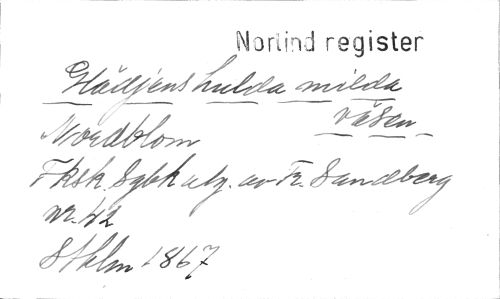 Norlind register
Glädjens hulda milda
väsen
Nordblom
Fksk. Sgbk utg. av Fr. Sandberg
nr. 42
Sthlm 1867